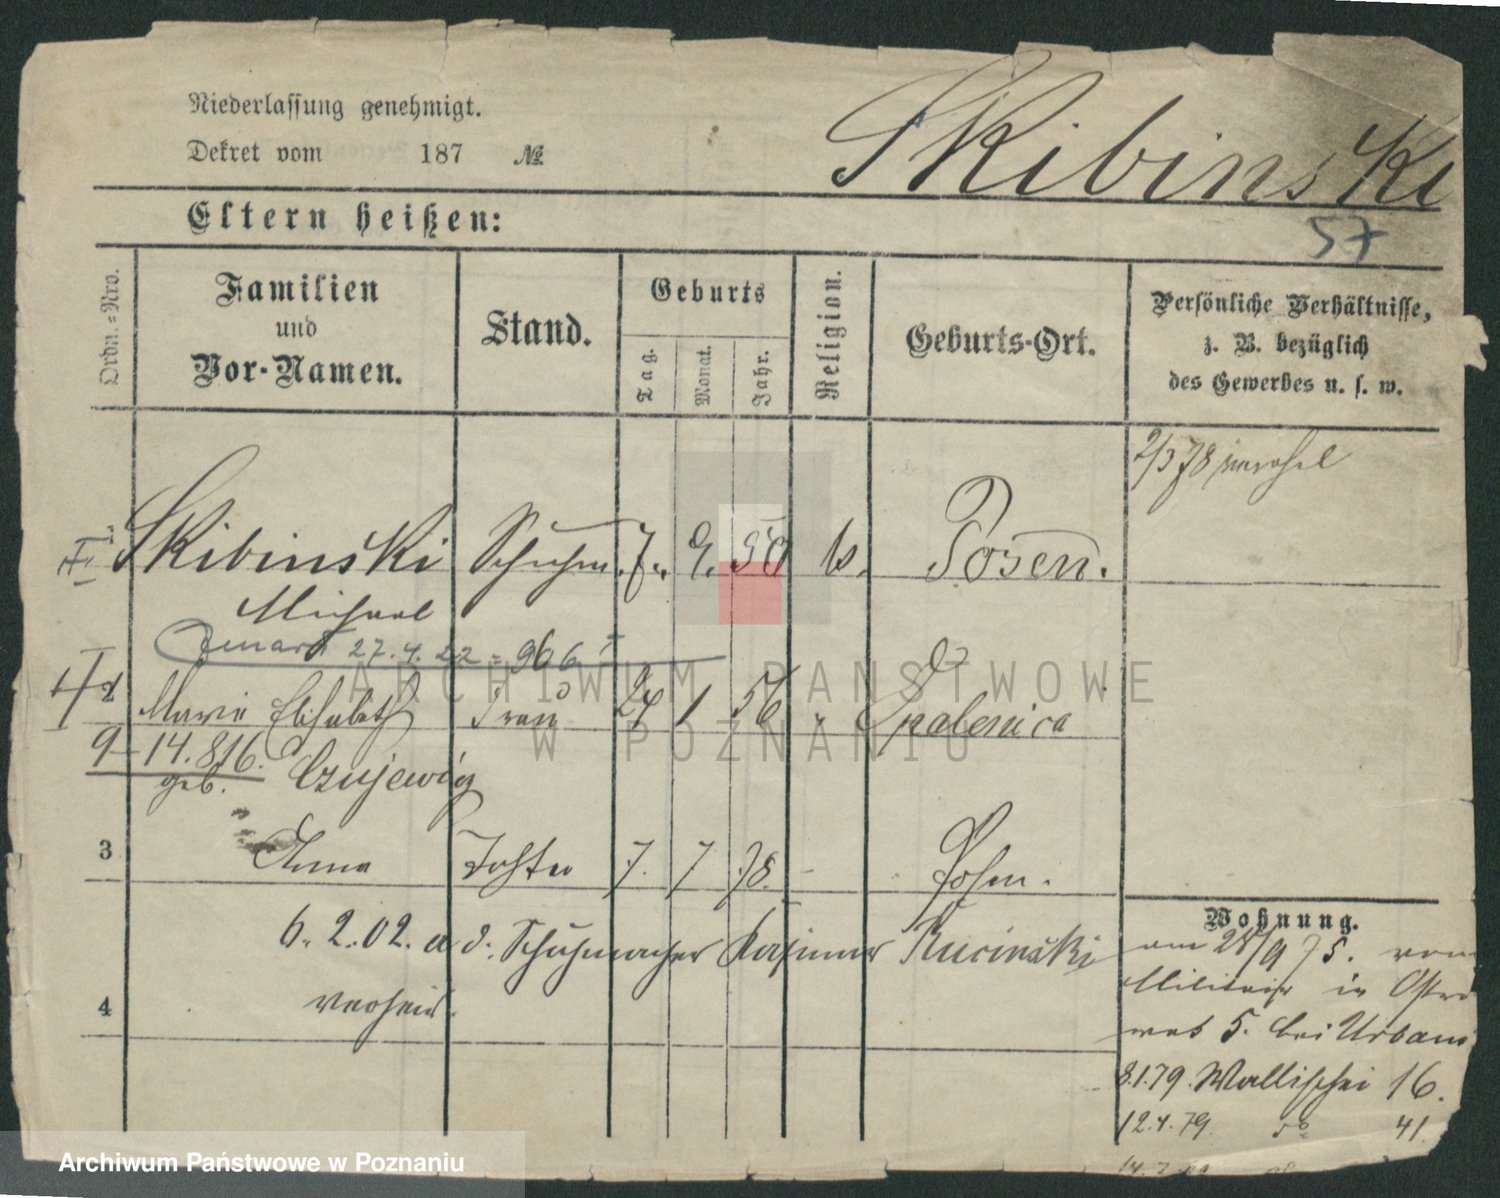 Niederlassung genehmigt.
Dekret vom 187 №
Skibinski
57
Eltern heißen:
Ordn.=Nro.
Familien und Vor-Namen.
Stand.
Geburts
Tag.
Monat.
Jahr.
Religion.
Geburts-Ort.
Persönliche Verhältnisse,
z. B. bezüglich
des Gewerbes u. s. w.
2/3 78
Skibinski Schuhm. 7. 9. 50 k. Posen.
Michael
27.4.22 = 966
2 Marie Elisabeth Frau 24 1 56 " Opalenica
9-14.816.
geb. Czujewicz
3 Anna Tochter 7. 7 78. - Posen.
6. 2. 02. a d. Schuhmacher Kasimir Kucinski
verheir.
4
Wohnung.
am 28/9 75. vom
Militair in Ostro
wo 5. bei Urbans
8.1.79. Wallischei 16.
12.4.79. do 41.
ARCHIWUM PAŃSTWOWE
W POZNANIU
Archiwum Państwowe w Poznaniu